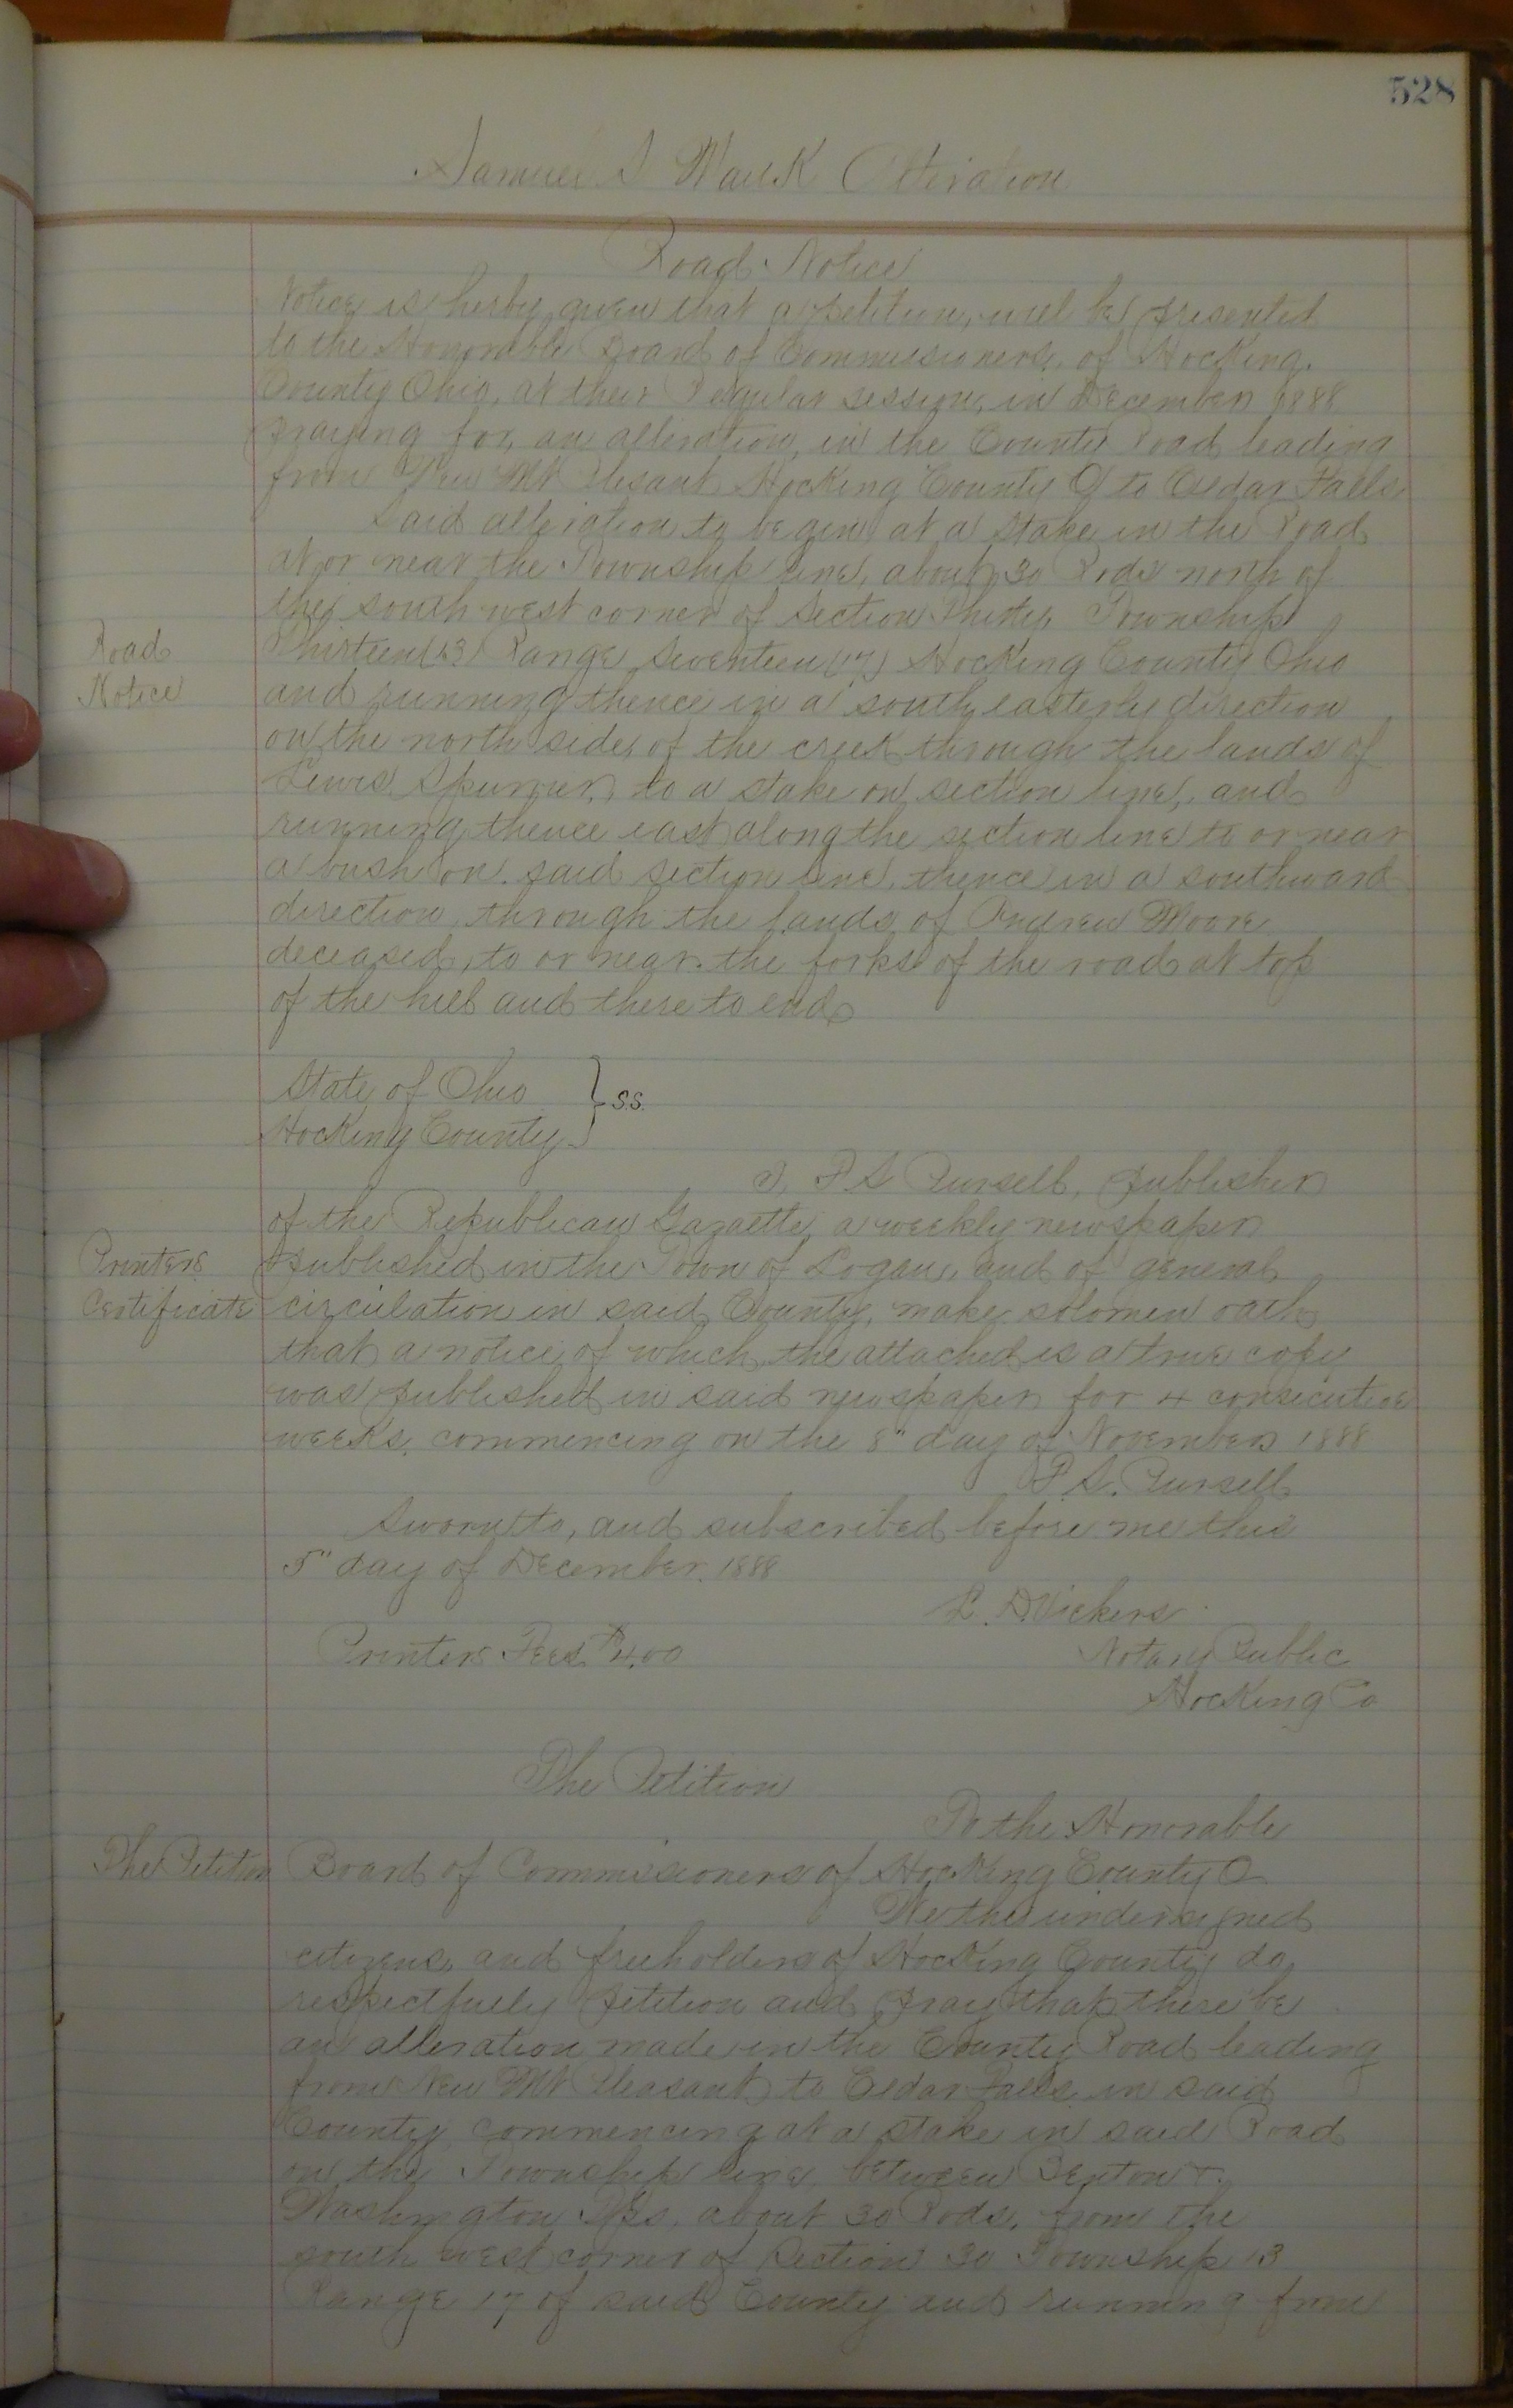 528
Samuel S Mauk Alteration
Road Notice
Notice is herby given that a petition, will be presented
to the Honorable Board of Commissioners, of Hocking
County Ohio, at their Regular session, in December 1888
praying for, an alteration, in the County Road leading
from New Mt Plesant Hocking County O to Cedar Falls
Said alteration to begin at a stake in the Road
at or near the Township line, about 30 Rods north of
the south west corner of Section Thirty, Township
Road
Notice
Thirteen (13) Range Seventeen (17) Hocking County Ohio
and running thence in a south easterly direction
on the north side, of the creek through the lands of
Lewis Spurrier, to a stake on section line, and
running thence east along the section line to or near
a bush on said section line, thence in a southward
direction, through the lands of Andrew Moore
deceased, to or near the forks of the road at top
of the hill and there to end
State of Ohio
Hocking County } S.S.
I, F S Pursell, publisher
of the Republican Gazaette, a weekly newspaper
Printers
Certificate
published in the Town of Logan, and of general
circulation in said County, make solomen oath
that a notice of which the attached is a true copy
was published in said newspaper for 4 consecutive
weeks, commencing on the 8" day of November 1888
F. S. Pursell
Sworn to, and subscribed before me this
5" day of December. 1888
L. D. Vickers
Printers Fees $4.00
Notary Public
Hocking Co
The Petition
To the Honorable
The Petition
Board of Commissioners of Hocking County O
We the undersigned
citizens, and freeholders of Hocking County do
respectfully petition and pray that there be
an alteration made in the County Road leading
from New Mt Pleasant to Cedar Falls in said
County, commencing at a stake in said Road
on the Township line, between Benton &
Washington Tps, about 30 Rods, from the
south west corner of Section 30 Township 13
Range 17 of said County and running from